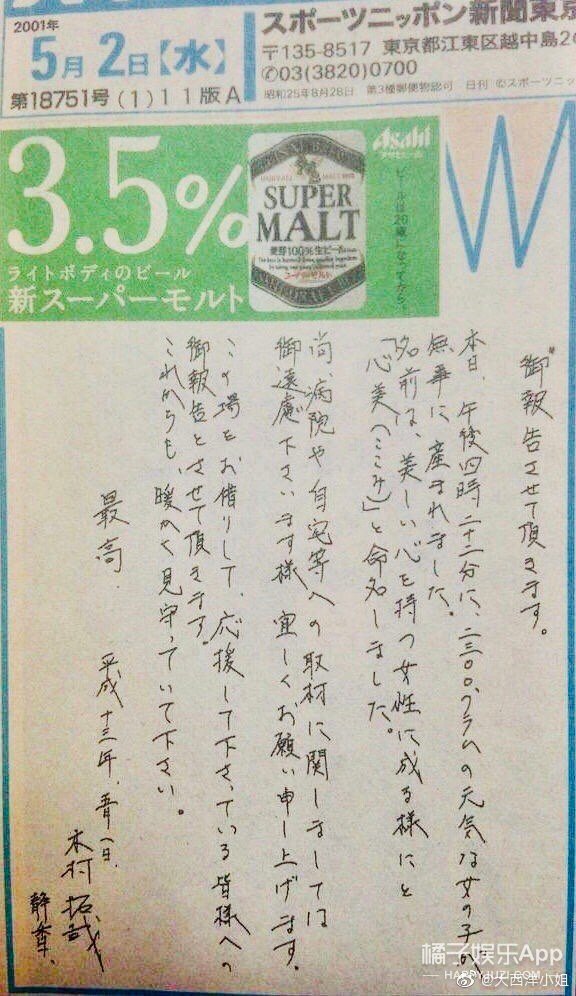 2001年
5月2日【水】
第18751号(1)11版A
スポーツニッポン新聞東京
〒135-8517 東京都江東区越中島2
✆03(3820)0700
昭和25年8月28日 第3種郵便物認可 日刊 ©スポーツニッ
3.5%
ライトボディのビール
新スーパーモルト
SUPER
MALT
麦芽100%生ビール
Asahi
アサヒビール
ビールは20歳になってから。
御報告させて頂きます。
本日、午後四時二十二分に、二三〇〇グラムの元気な女の子が
無事に産まれました。
名前は、美しい心を持つ女性に成る様にと
「心美(ここみ)」と命名しました。
尚、病院や自宅等への取材に関しましては
御遠慮下さいます様 宜しくお願い申し上げます。
この場をお借りして、応援して下さっている皆様への
御報告とさせて頂きます。
これからも、暖かく見守っていて下さい。
最高.
平成十三年、五月一日.
木村拓哉
静香.
橘子娱乐App
HAPPYJUZI.COM
@大西洋小姐